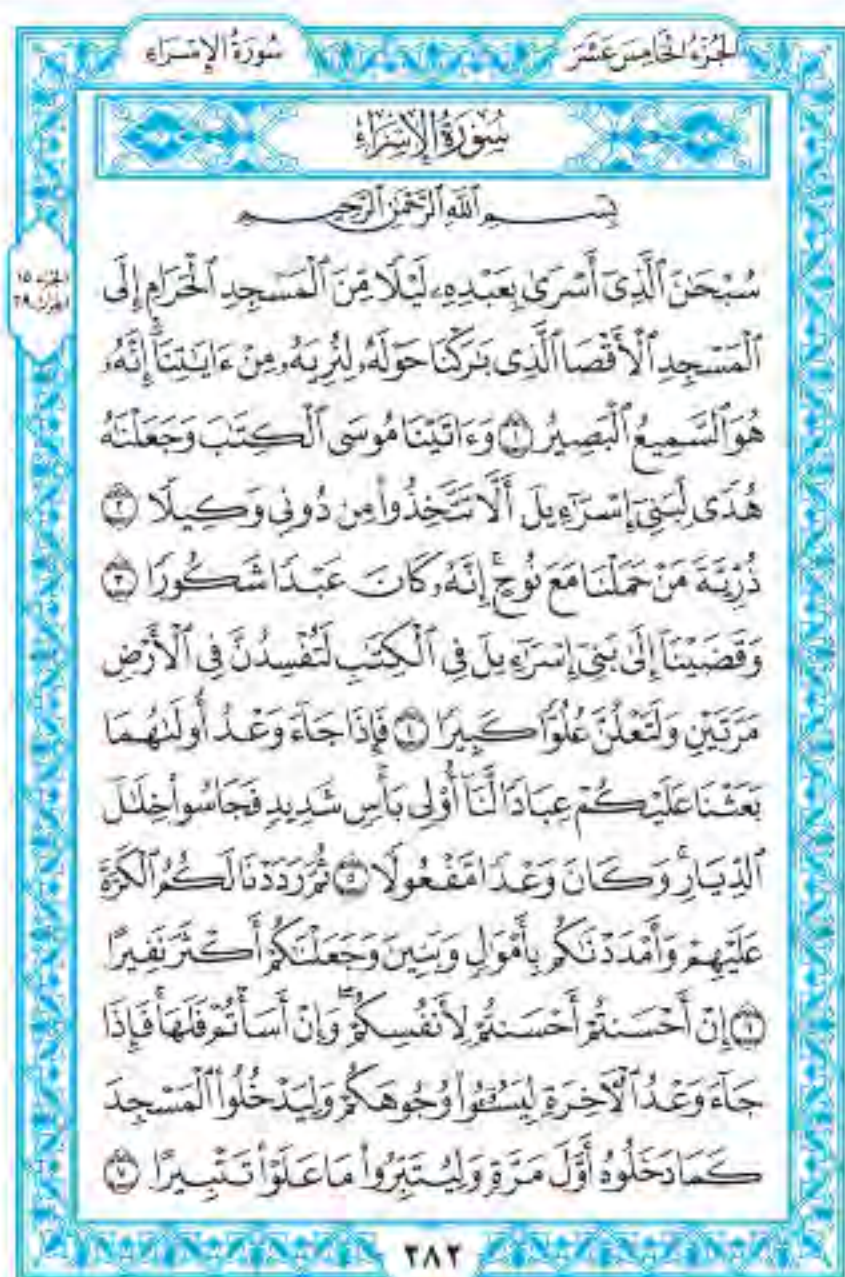 الجزء الخامس عشر
سورة الإسراء
سُورَةُ الإِسْرَاءِ
بِسْمِ ٱللَّهِ ٱلرَّحْمَٰنِ ٱلرَّحِيمِ
سُبْحَٰنَ ٱلَّذِىٓ أَسْرَىٰ بِعَبْدِهِۦ لَيْلًا مِّنَ ٱلْمَسْجِدِ ٱلْحَرَامِ إِلَى
ٱلْمَسْجِدِ ٱلْأَقْصَا ٱلَّذِى بَٰرَكْنَا حَوْلَهُۥ لِنُرِيَهُۥ مِنْ ءَايَٰتِنَآ ۚ إِنَّهُۥ
هُوَ ٱلسَّمِيعُ ٱلْبَصِيرُ ١ وَءَاتَيْنَا مُوسَى ٱلْكِتَٰبَ وَجَعَلْنَٰهُ
هُدًى لِّبَنِىٓ إِسْرَٰٓءِيلَ أَلَّا تَتَّخِذُوا۟ مِن دُونِى وَكِيلًا ٢
ذُرِّيَّةَ مَنْ حَمَلْنَا مَعَ نُوحٍ ۚ إِنَّهُۥ كَانَ عَبْدًا شَكُورًا ٣
وَقَضَيْنَآ إِلَىٰ بَنِىٓ إِسْرَٰٓءِيلَ فِى ٱلْكِتَٰبِ لَتُفْسِدُنَّ فِى ٱلْأَرْضِ
مَرَّتَيْنِ وَلَتَعْلُنَّ عُلُوًّا كَبِيرًا ٤ فَإِذَا جَآءَ وَعْدُ أُولَىٰهُمَا
بَعَثْنَا عَلَيْكُمْ عِبَادًا لَّنَآ أُو۟لِى بَأْسٍ شَدِيدٍ فَجَاسُوا۟ خِلَٰلَ
ٱلدِّيَارِ ۚ وَكَانَ وَعْدًا مَّفْعُولًا ٥ ثُمَّ رَدَدْنَا لَكُمُ ٱلْكَرَّةَ
عَلَيْهِمْ وَأَمْدَدْنَٰكُم بِأَمْوَٰلٍ وَبَنِينَ وَجَعَلْنَٰكُمْ أَكْثَرَ نَفِيرًا
٦ إِنْ أَحْسَنتُمْ أَحْسَنتُمْ لِأَنفُسِكُمْ ۖ وَإِنْ أَسَأْتُمْ فَلَهَا ۚ فَإِذَا
جَآءَ وَعْدُ ٱلْءَاخِرَةِ لِيَسُۥٓـُٔوا۟ وُجُوهَكُمْ وَلِيَدْخُلُوا۟ ٱلْمَسْجِدَ
كَمَا دَخَلُوهُ أَوَّلَ مَرَّةٍ وَلِيُتَبِّرُوا۟ مَا عَلَوْا۟ تَتْبِيرًا ٧
٢٨٢